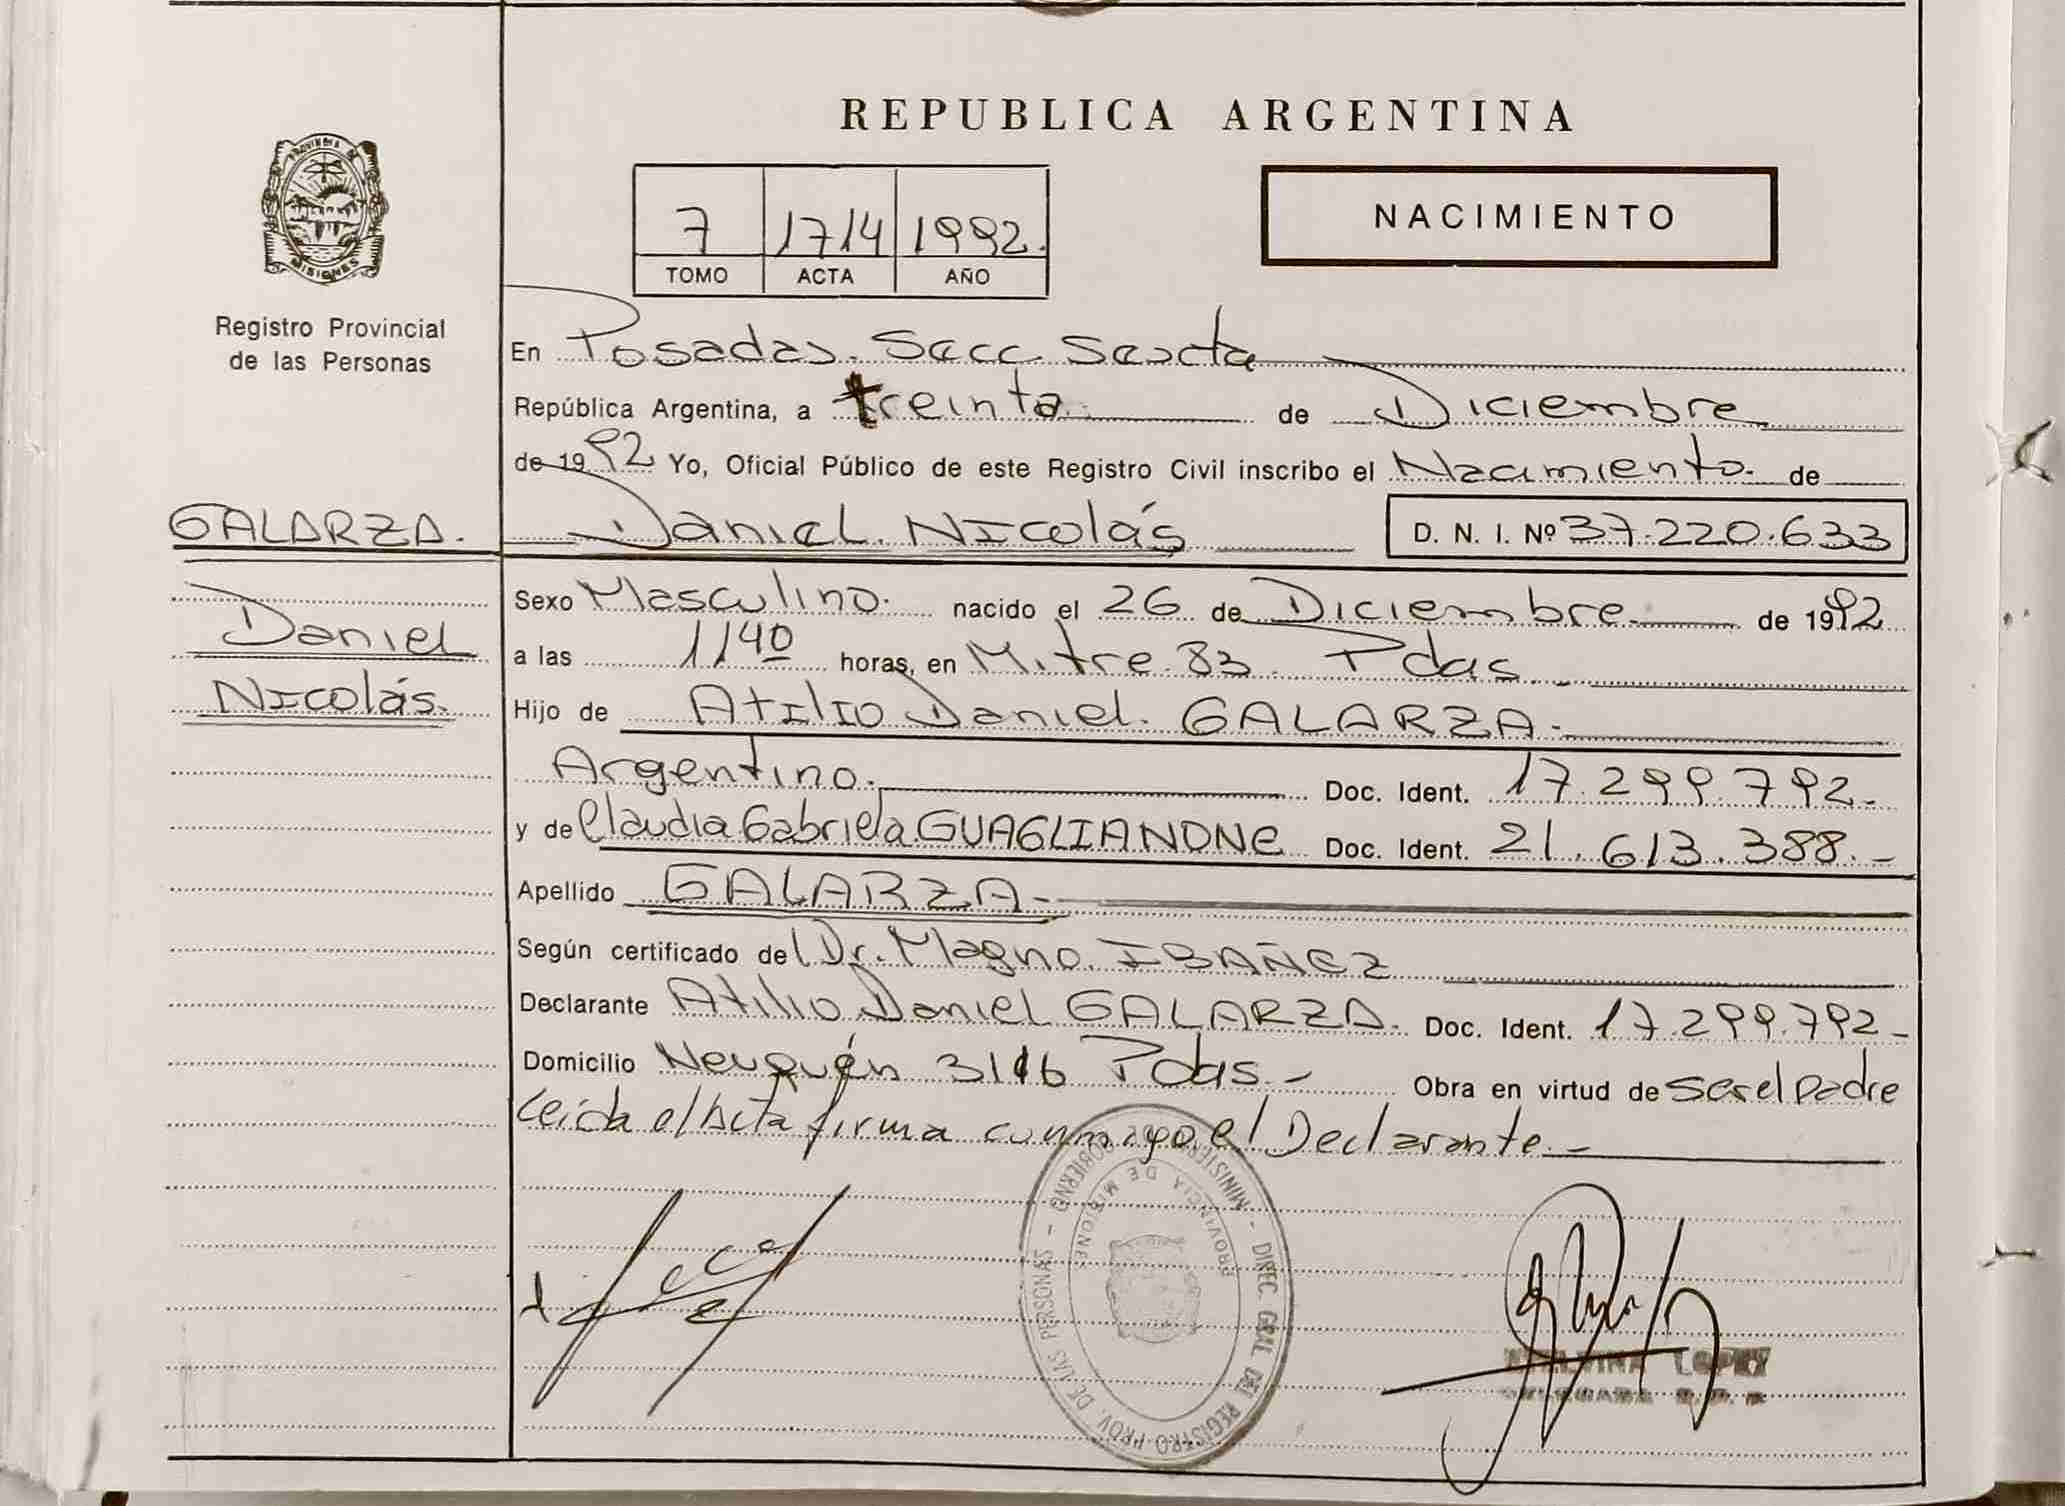 REPUBLICA ARGENTINA
PROVINCIA DE
MISIONES
Registro Provincial
de las Personas
7 1714 1992.
TOMO ACTA AÑO
NACIMIENTO
En Posadas. Secc. Sexta
República Argentina, a treinta de Diciembre
de 1992 Yo, Oficial Público de este Registro Civil inscribo el Nacimiento. de
GALARZA. Daniel Nicolás D. N. I. Nº 37.220.633
Daniel
Nicolás.
Sexo Masculino. nacido el 26 de Diciembre de 1992
a las 1140 horas, en Mitre 83. Pdas.
Hijo de Atilio Daniel. GALARZA.-
Argentino. Doc. Ident. 17.299.792.-
y de Claudia Gabriela GUAGLIANONE Doc. Ident. 21.613.388.-
Apellido GALARZA.-
Según certificado del Dr. Magno IBAÑEZ
Declarante Atilio Daniel GALARZA. Doc. Ident. 17.299.792-
Domicilio Neuquén 3116 Pdas.- Obra en virtud de ser el padre
Leida el Acta firma conmigo el Declarante.-
MINISTERIO DE GOBIERNO - DIREC. GRAL. DEL REGISTRO PROV. DE LAS PERSONAS -
PROVINCIA DE MISIONES
LOPEZ